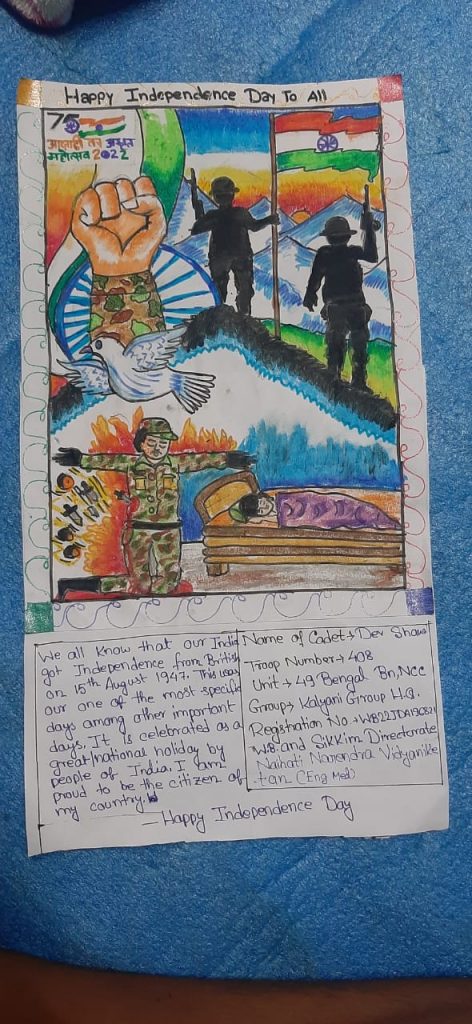 Happy Independence Day To All
75
आज़ादी का अमृत
महोत्सव 2022
We all know that our India
got Independence from British
on 15th August 1947. This was
our one of the most specific
days among other important
days. It is celebrated as a
great/national holiday by
people of India. I am
proud to be the citizen of
my country.
Name of Cadet→ Dev Shaw
Troop Number→ 408
Unit → 49 Bengal Bn, Ncc
Group→ Kalyani Group H.Q.
Registration No.→
W.B. and Sikkim Directorate
Naihati Narendra Vidyanike
-tan (Eng Med)
Happy Independence Day